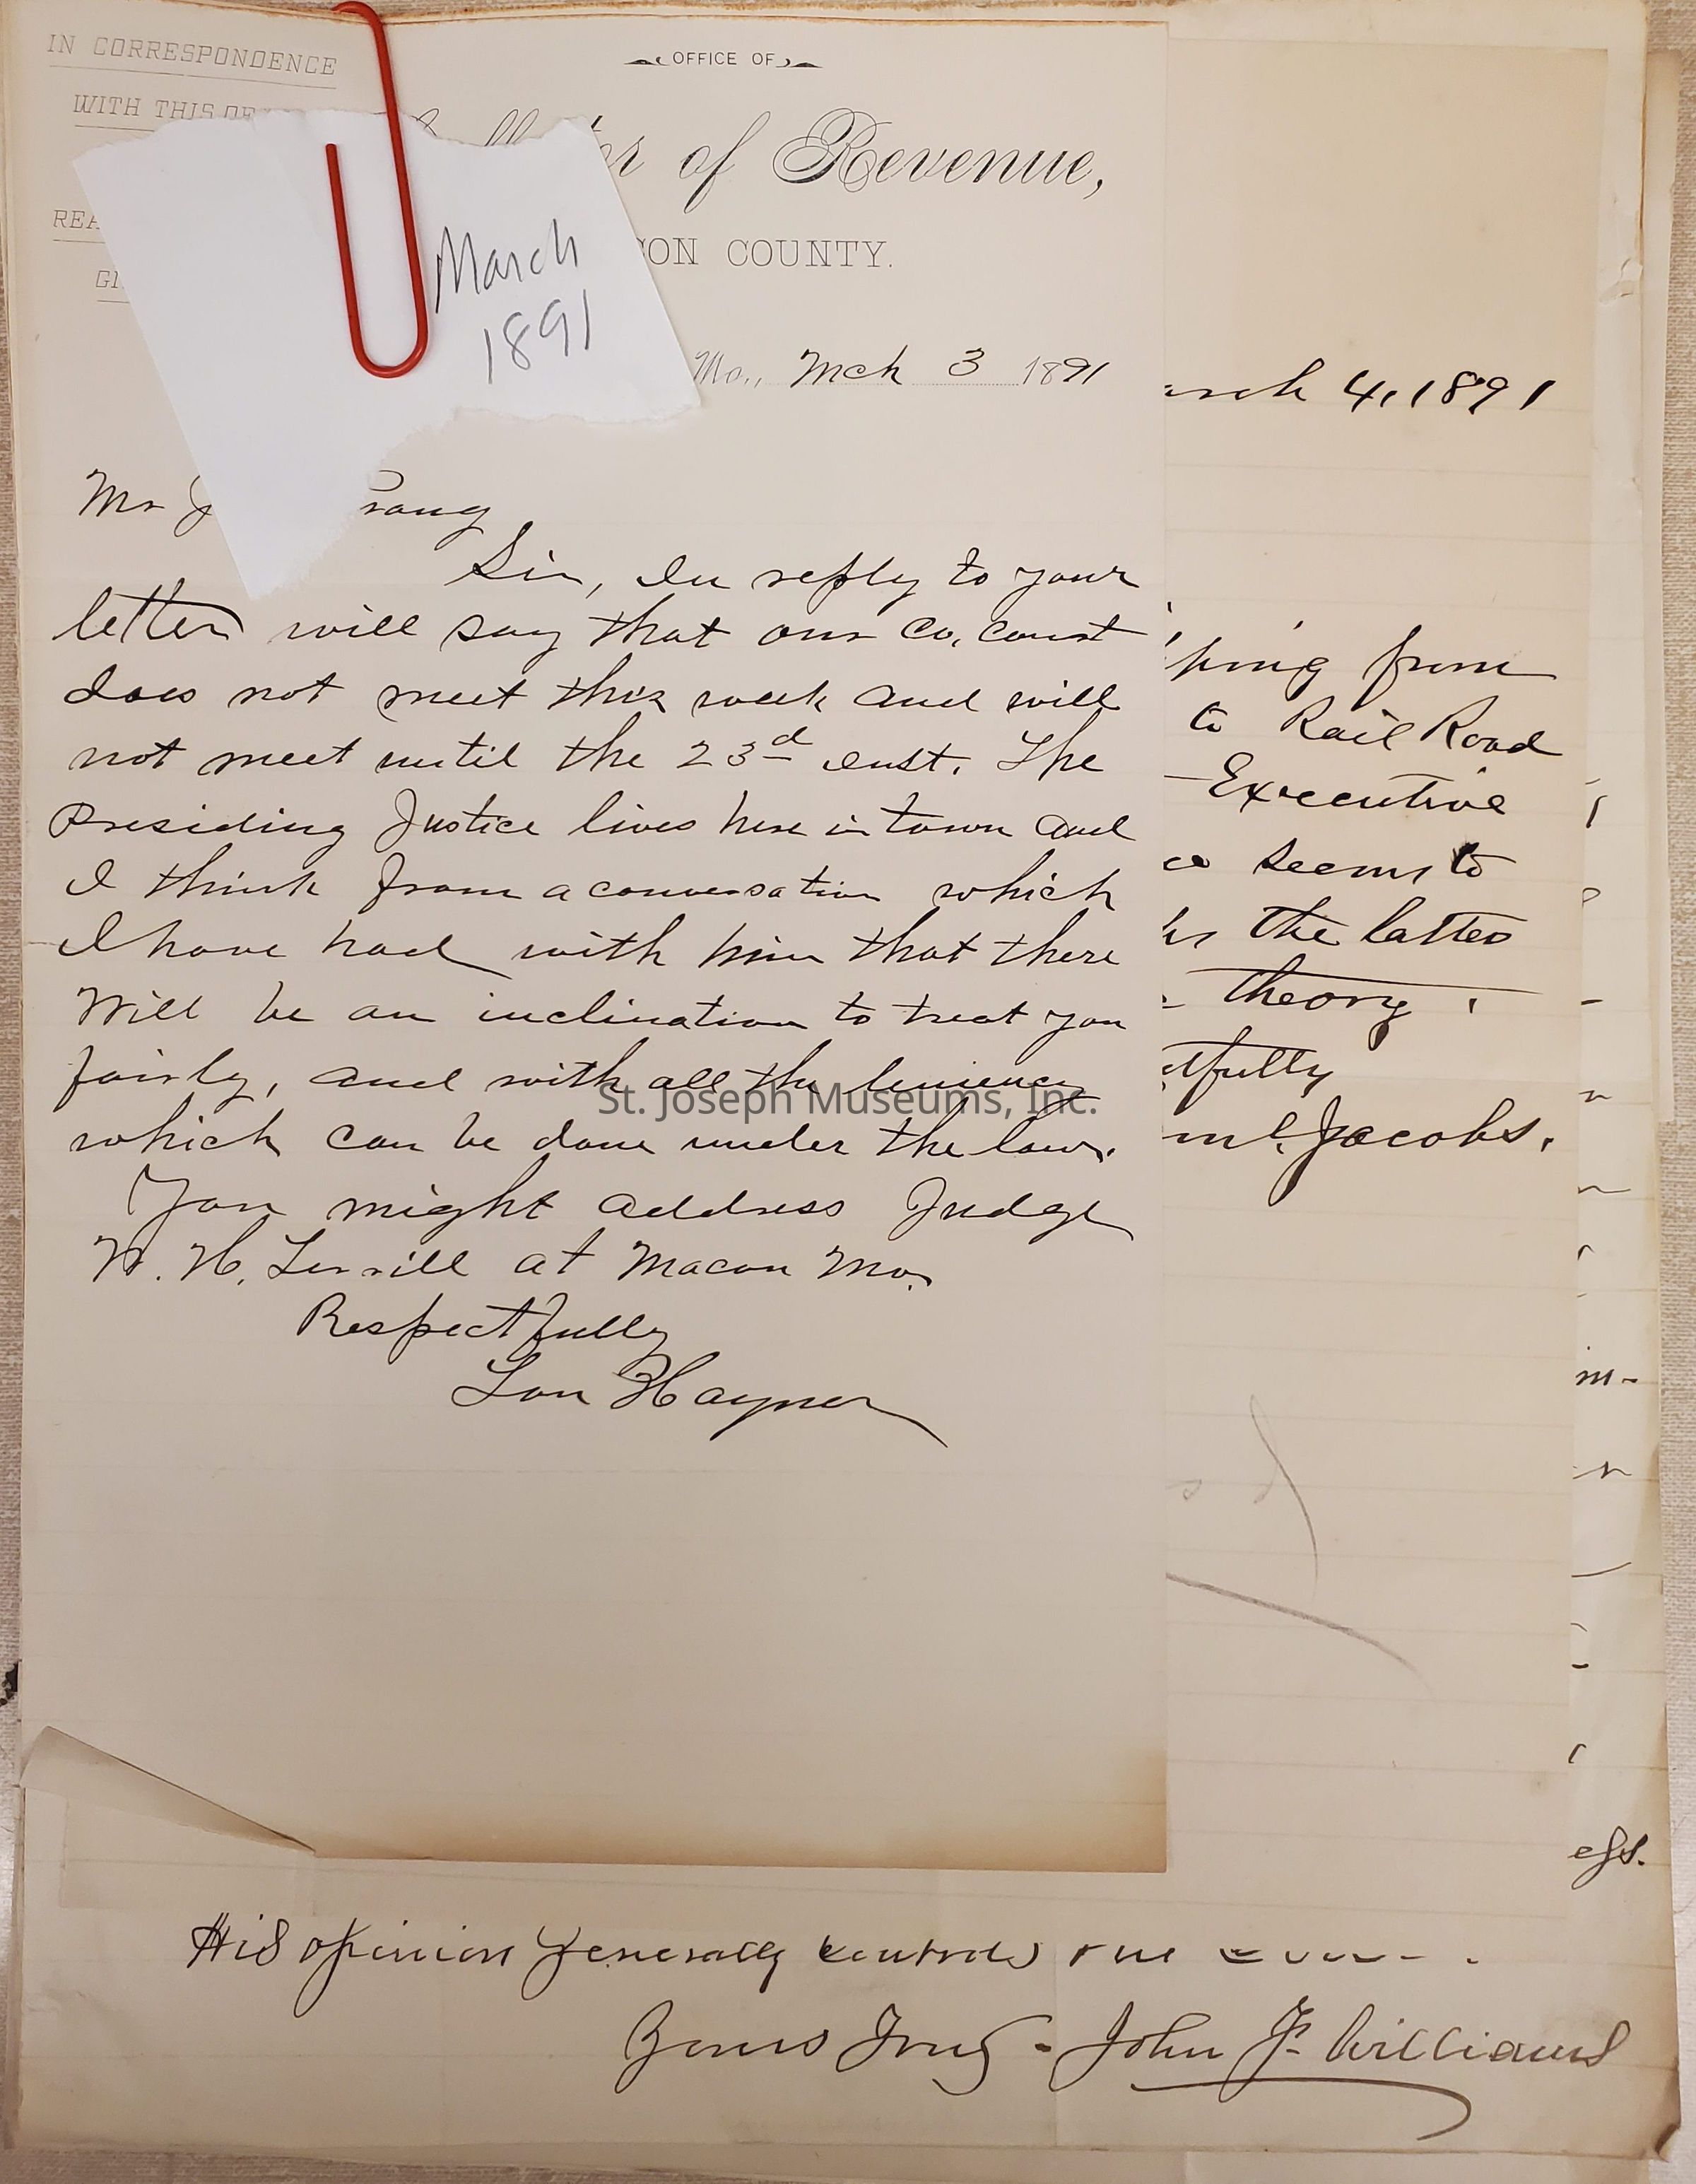 IN CORRESPONDENCE
WITH THIS
OFFICE OF
of Revenue,
COUNTY.
March
1891
Mo., Mch 3 1891
Mr
Sir, In reply to your
letter will say that our Co, Court
does not meet this week and will
not meet until the 23d inst. The
Presiding Justice lives here in town and
I think from a conversation which
I have had with him that there
Will be an inclination to treat you
fairly, and with all the leniency
which can be done under the law.
You might address Judge
W. H. at Macon Mo.
Respectfully
Lon Hayner
St. Joseph Museums, Inc.
4, 1891
from
to Rail Road
Executive
seems to
the latter
theory.
Jacobs.
His opinion generally controls
Yours Truly - John F. Williams